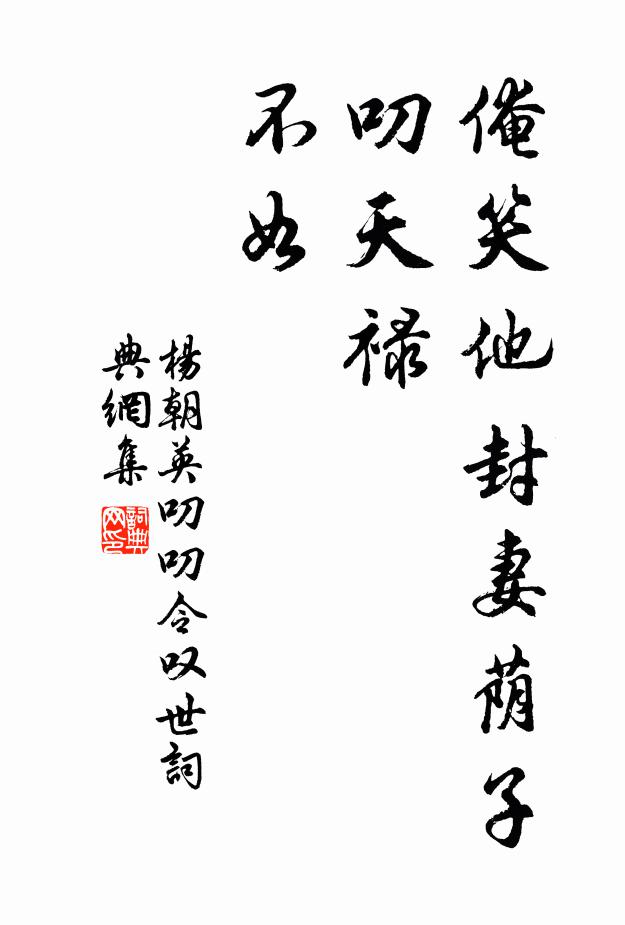 俺笑他封妻荫子
叨天禄
不如
楊朝英叨叨令叹世詞
典網集
詞典
网印